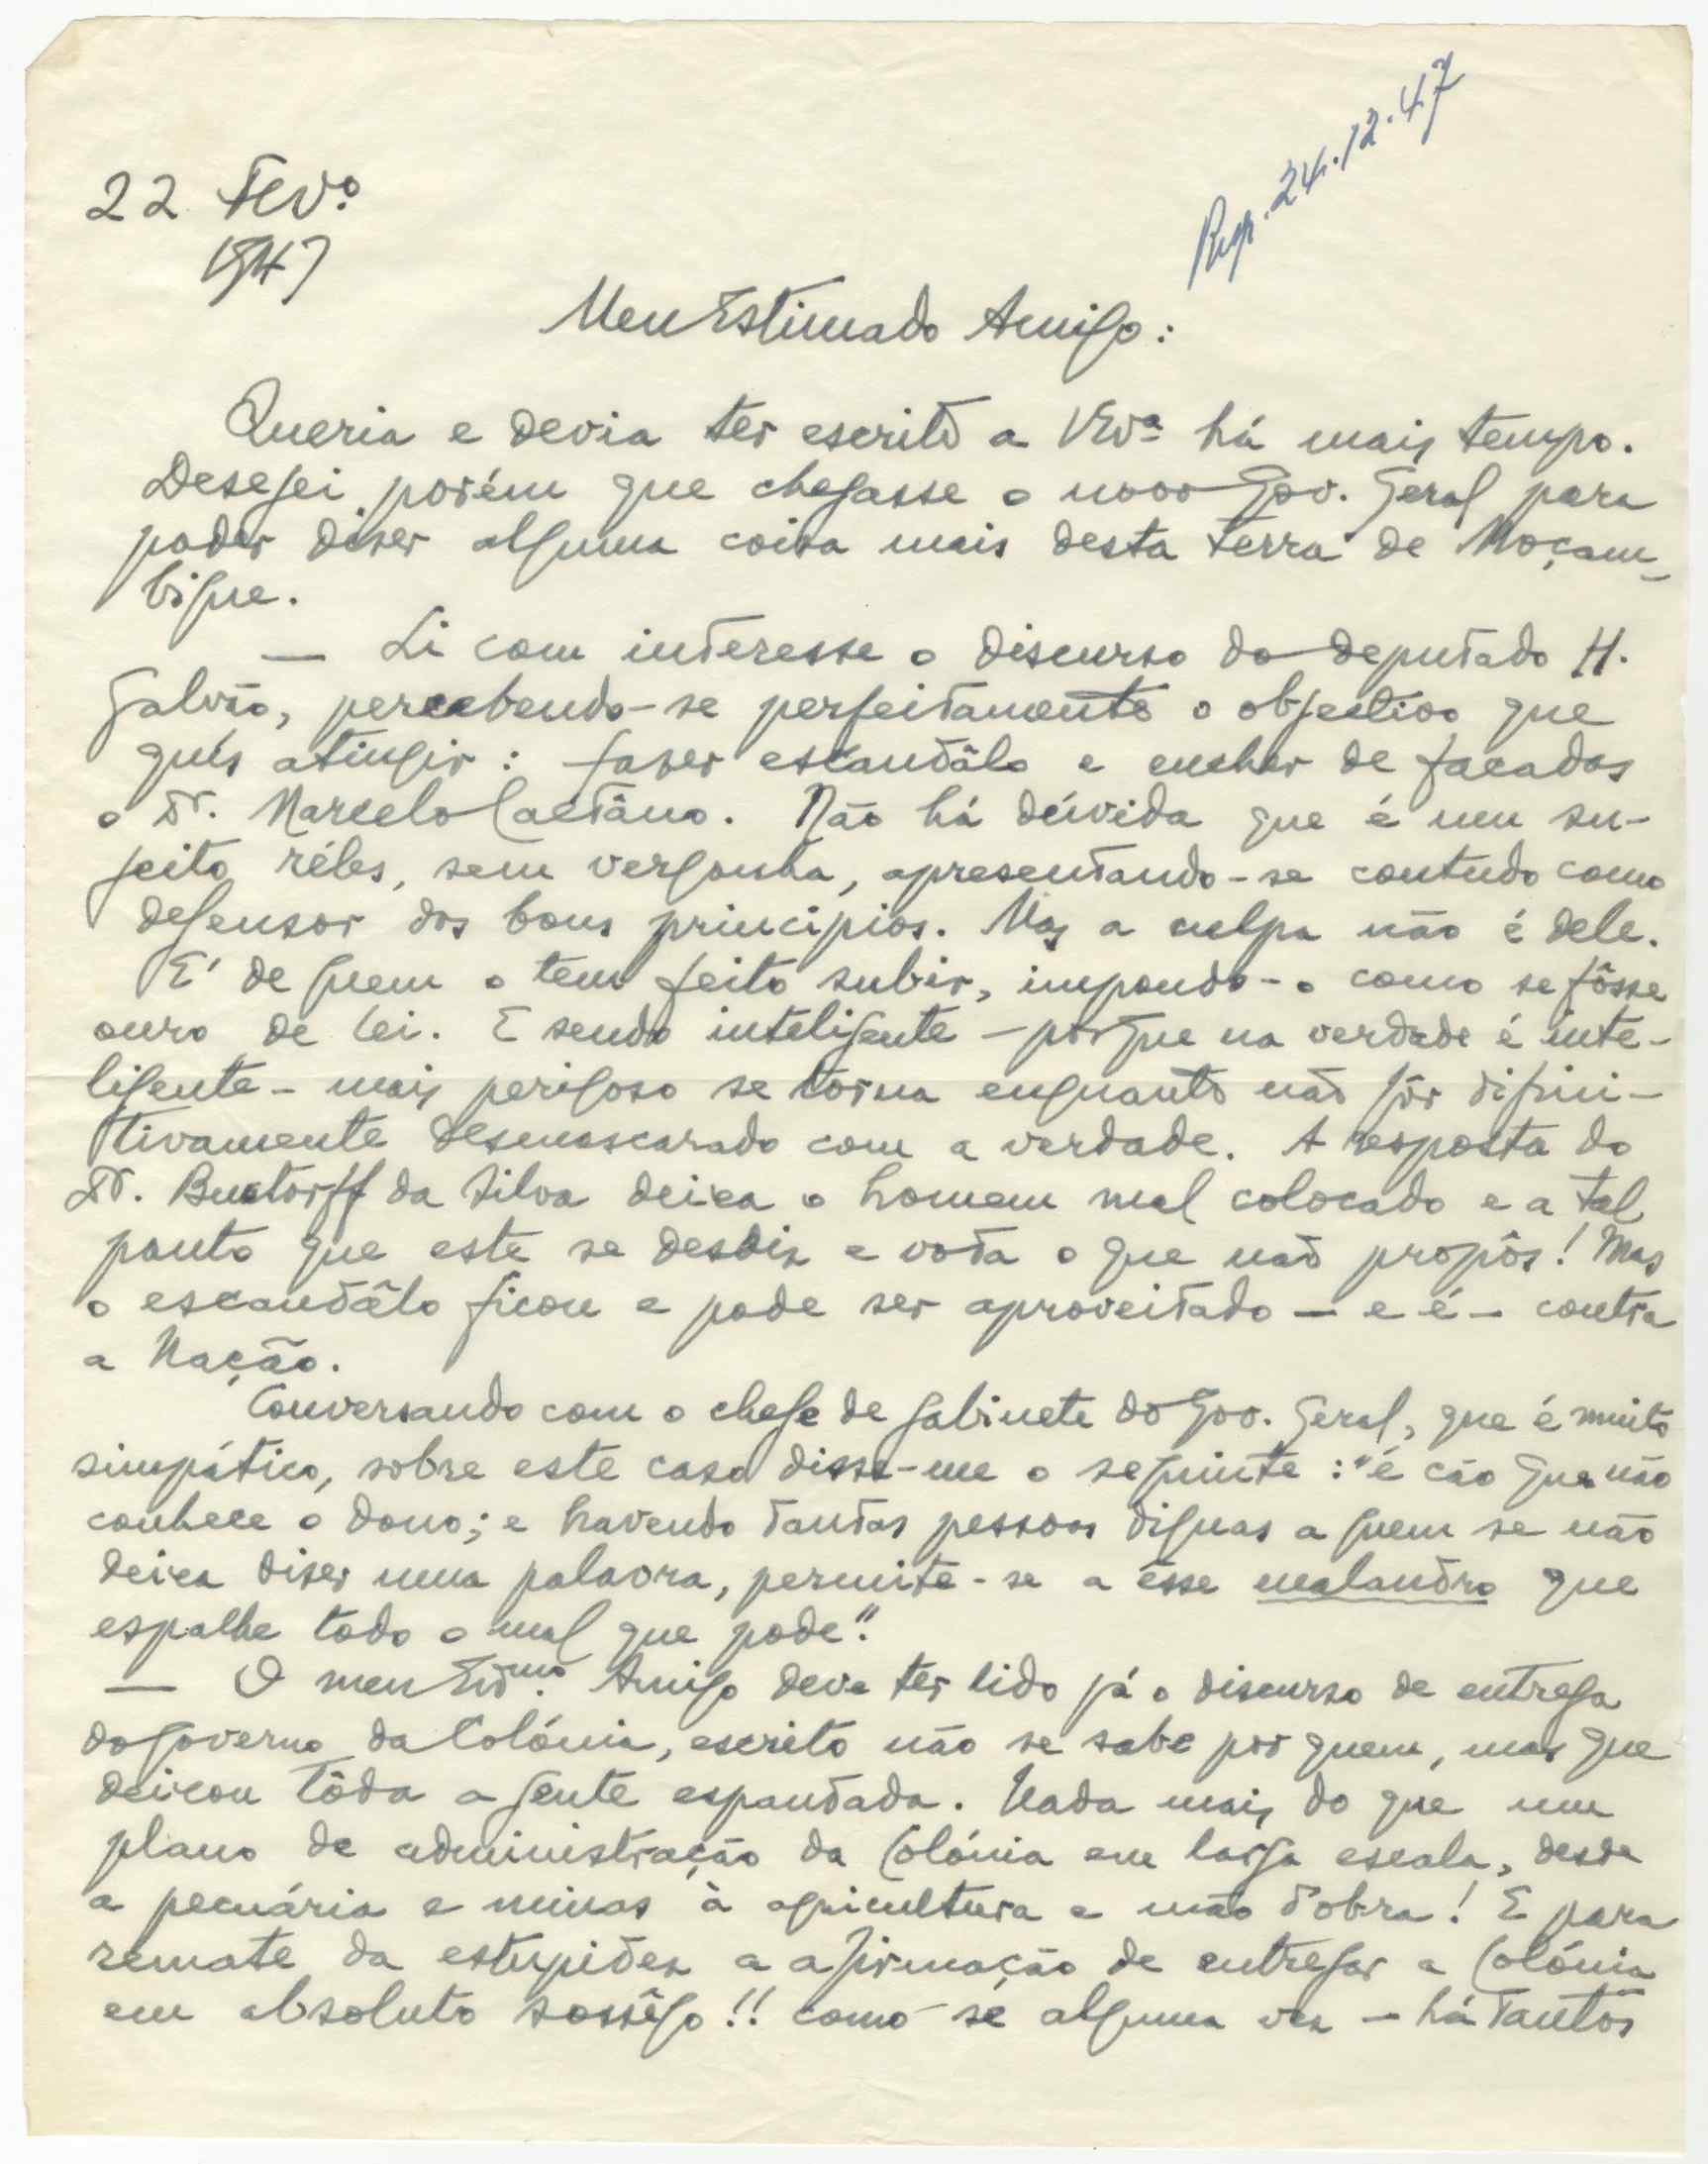 Resp. 24.12.47
22 Fevº
1947
Meu Estimado Amigo:
Queria e devia ter escrito a VExª há mais tempo.
Desejei porém que chegasse o novo Gov. Geral para
poder diser alguma coisa mais desta terra de Moçam-
bique.
— Li com interesse o discurso do deputado H.
Galvão, percebendo-se perfeitamente o objectivo que
quís atingir: faser escandâlo e encher de facadas
o Dr. Marcelo Caetâno. Não há dúvida que é um su-
jeito réles, sem vergonha, apresentando-se contudo como
defensor dos bons principios. Mas a culpa não é dele.
E' de quem o tem feito subir, impondo-o como se fôsse
ouro de lei. E sendo inteligente - porque na verdade é inte-
ligente - mais perigoso se torna enquanto não fôr difini-
tivamente desmascarado com a verdade. A resposta do
Dr. Bustorff da Silva deixa o homem mal colocado e a tal
ponto que este se desdiz e vota o que não propôs! Mas
o escandâlo ficou e pode ser aproveitado — e é — contra
a Nação.
Conversando com o chefe de gabinete do Gov. Geral, que é muito
simpático, sobre este caso disse-me o seguinte: "é cão que não
conhece o dono; e havendo tantas pessoas dignas a quem se não
deixa diser uma palavra, permite-se a êsse malandro que
espalhe todo o mal que pode".
— O meu Exmº. Amigo deve ter lido já o discurso de entrega
do governo da Colónia, escrito não se sabe por quem, mas que
deixou tôda a gente espantada. Nada mais do que um
plano de administração da Colónia em larga escala, desde
a pecuária e minas à agricultura e mão d'obra! E para
remate da estupidez a afirmação de entregar a Colónia
em absoluto sossêgo!! como se alguma vez — há tantos